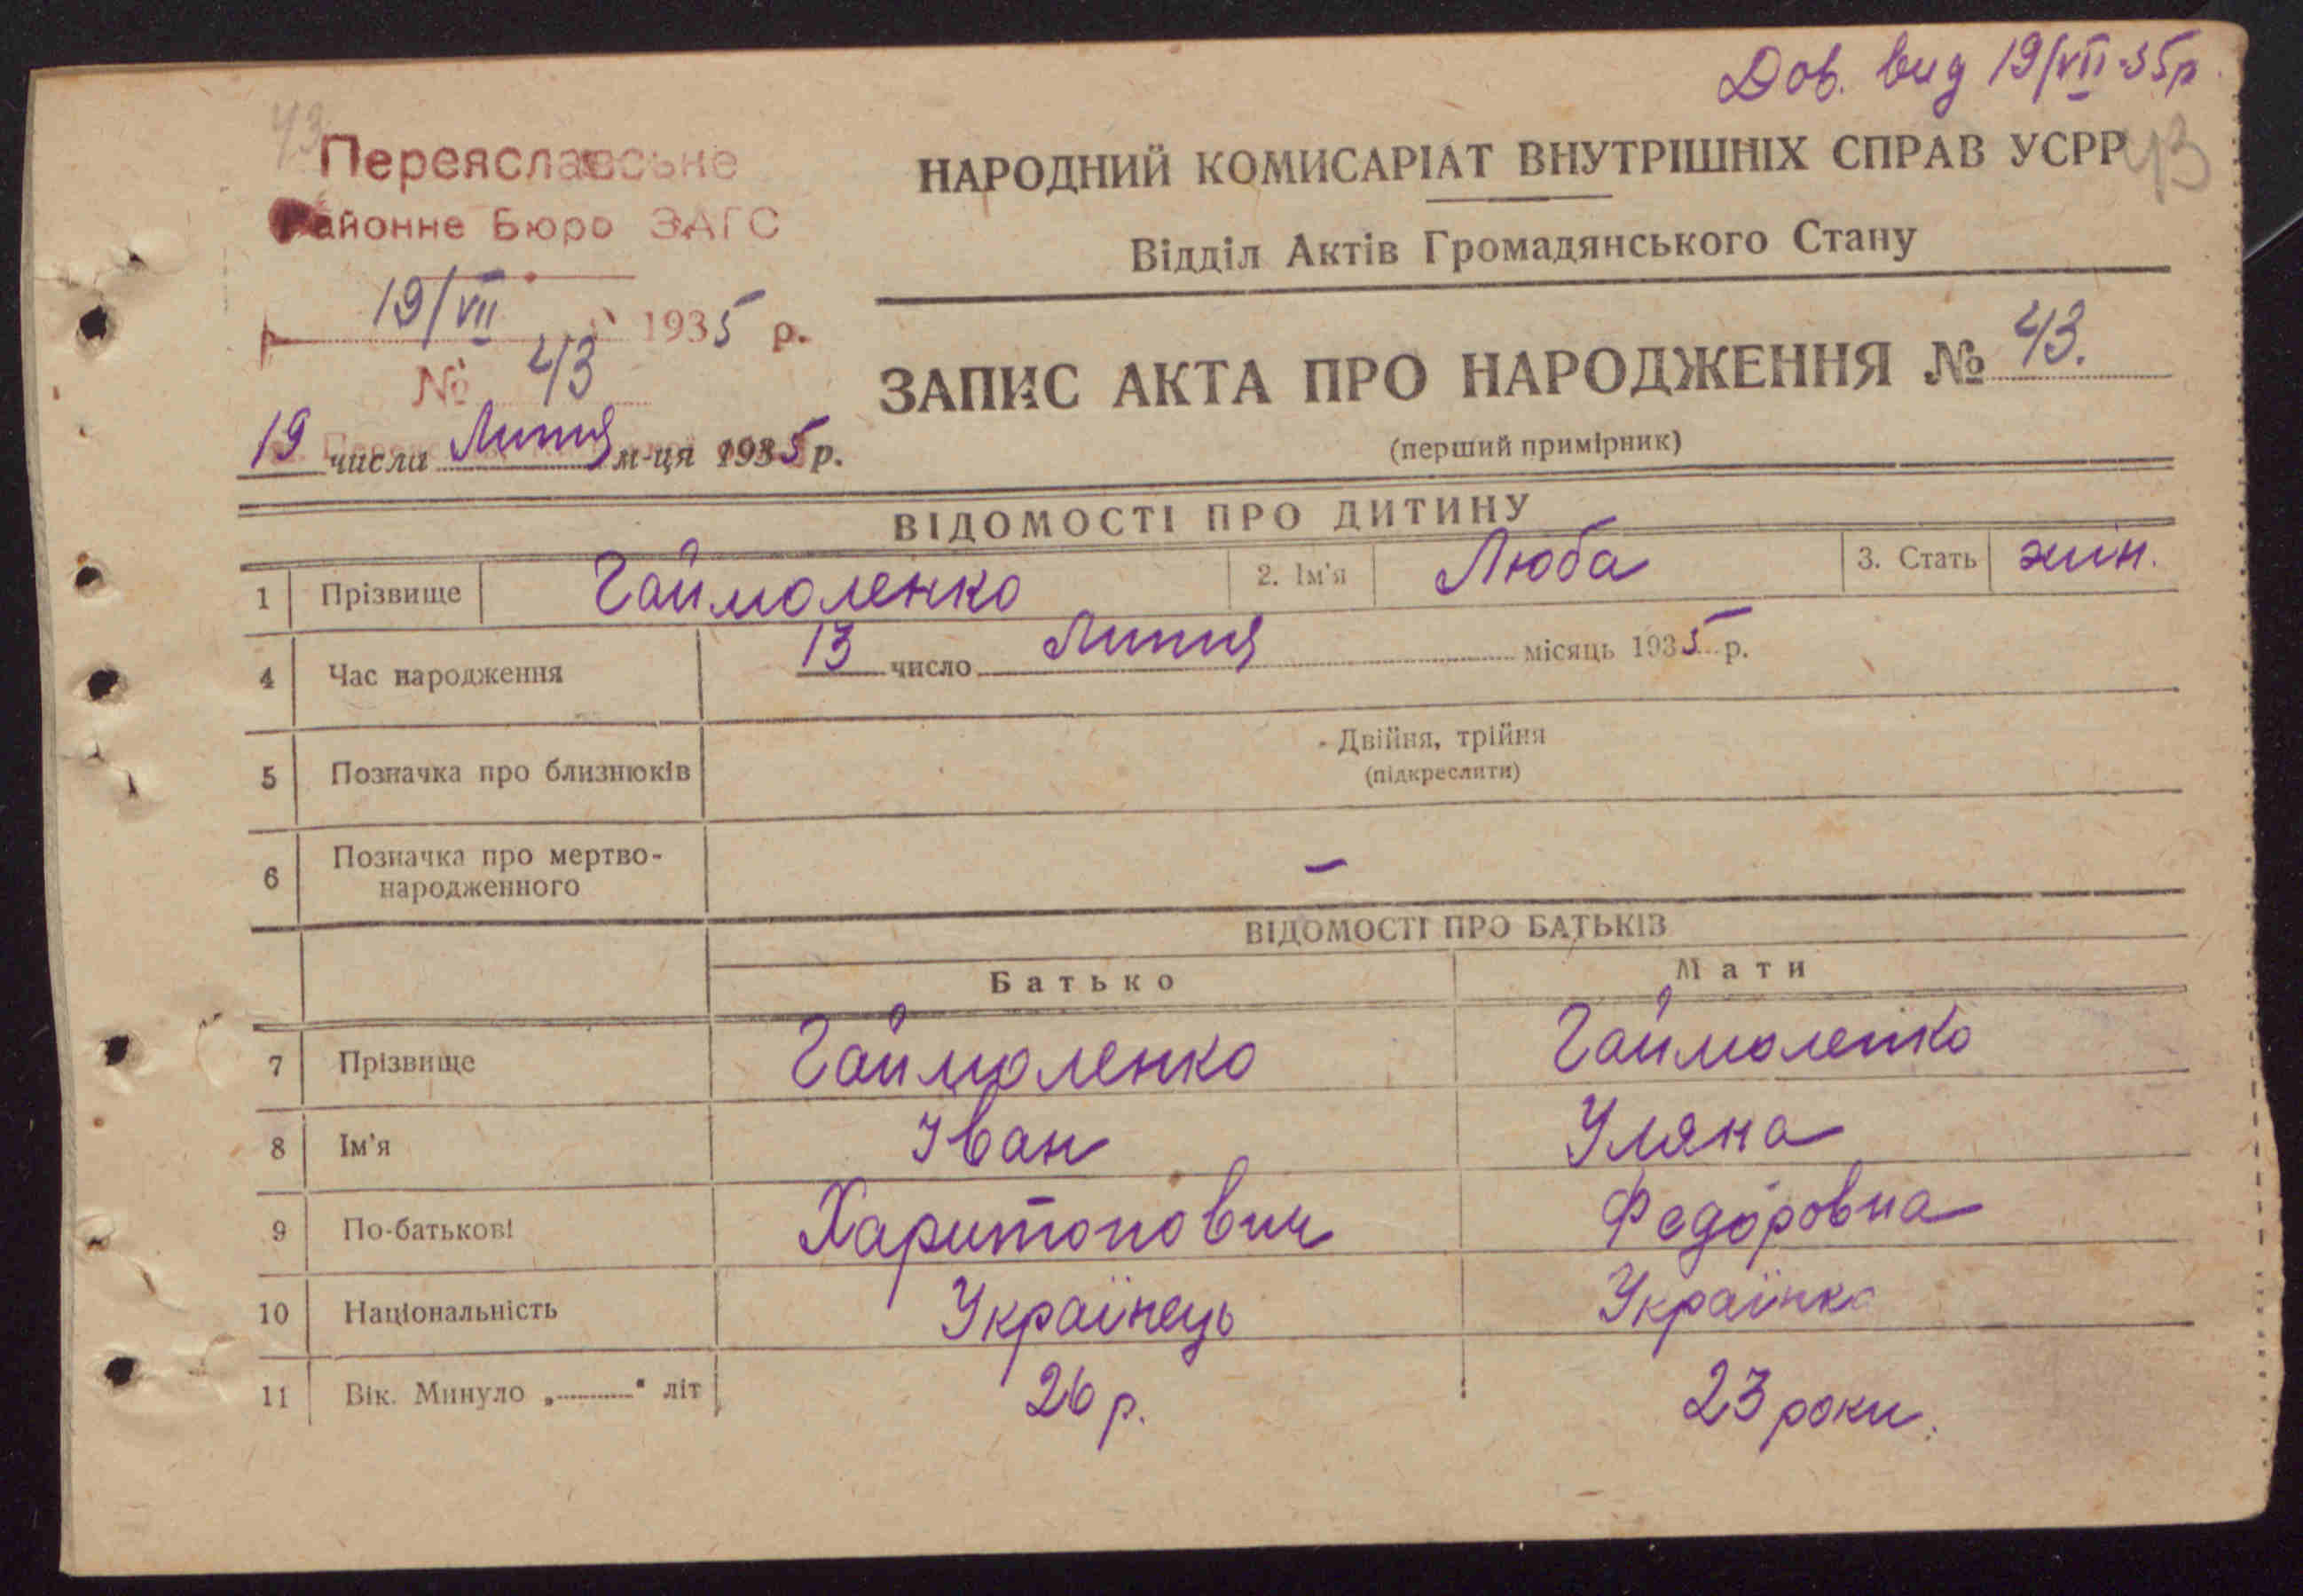 Дов. вид 19/VII-35р
43
Переяславське
Районне Бюро ЗАГС
19/VII 1935 р.
№ 43
19 числа Липня м-ця 1935 р.
НАРОДНИЙ КОМИСАРІАТ ВНУТРІШНІХ СПРАВ УСРР 43
Відділ Актів Громадянського Стану
ЗАПИС АКТА ПРО НАРОДЖЕННЯ № 43.
(перший примірник)
ВІДОМОСТІ ПРО ДИТИНУ
1 Прізвище Гаймоленко 2. Ім'я Люба 3. Стать жін.
4 Час народження 13 число Липня місяць 1935 р.
5 Позначка про близнюків Двійня, трійня
(підкреслити)
6 Позначка про мертво-
народженного –
ВІДОМОСТІ ПРО БАТЬКІВ
Батько Мати
7 Прізвище Гаймоленко Гаймоленко
8 Ім'я Іван Уляна
9 По-батькові Харитонович Федоровна
10 Національність Українець Українка
11 Вік. Минуло „............" літ 26 р. 23 роки.